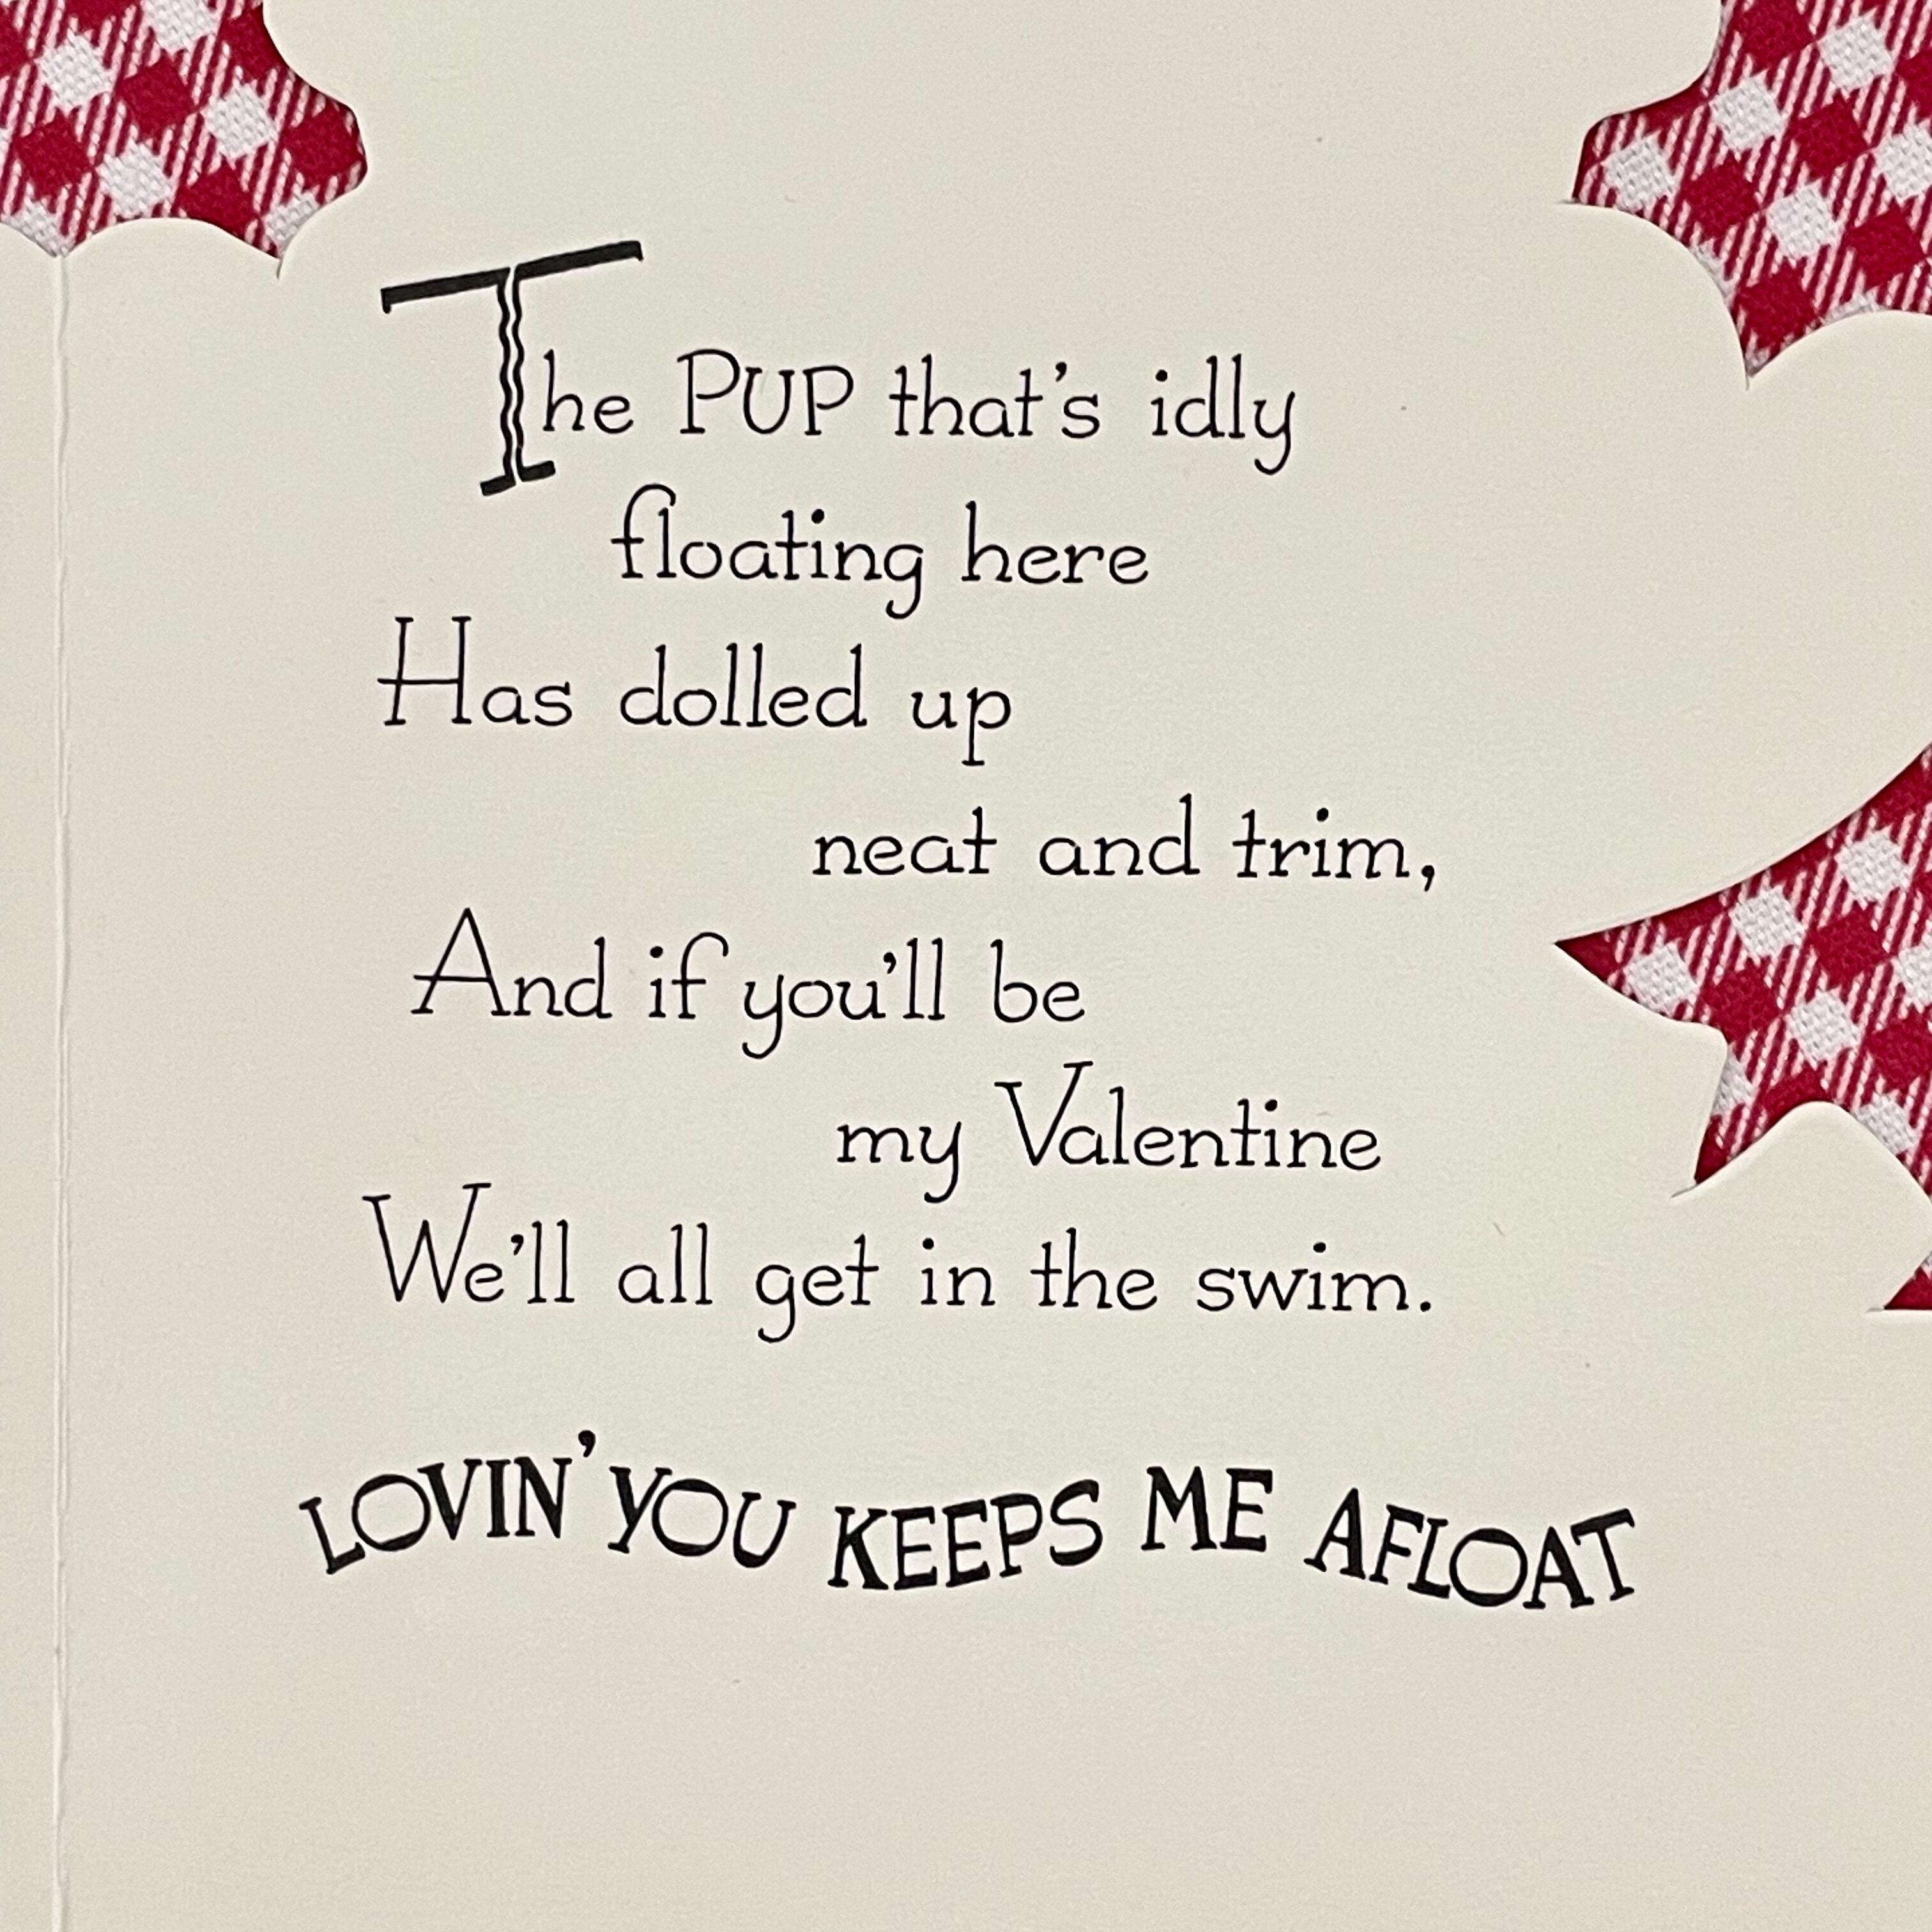 The PUP that's idly
floating here
Has dolled up
neat and trim,
And if you'll be
my Valentine
We'll all get in the swim.
LOVIN' YOU KEEPS ME AFLOAT